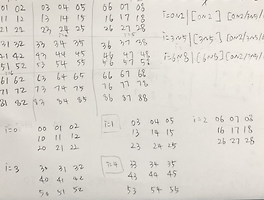 01 02 03 04 05 06 07 08
11 12 13 14 15 16 17 18
21 22 23 24 25 26 27 28
31 32 33 34 35 36 37 38
41 42 43 44 45 46 47 48
51 52 53 54 55 56 57 58
61 62 63 64 65 66 67 68
71 72 73 74 75 76 77 78
81 82 83 84 85 86 87 88
i=0 00 01 02
10 11 12
20 21 22
i=1 03 04 05
13 14 15
23 24 25
i=2 06 07 08
16 17 18
26 27 28
i=3 30 31 32
40 41 42
50 51 52
i=4 33 34 35
43 44 45
53 54 55